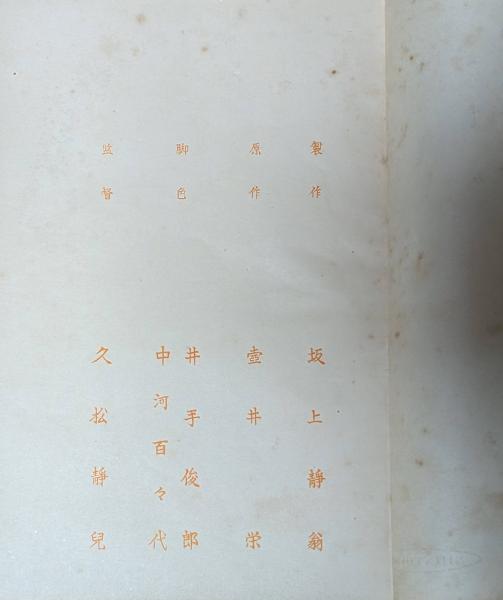 製作　坂上靜翁
原作　壺井栄
脚色　井手俊郎
中河百々代
監督　久松靜児